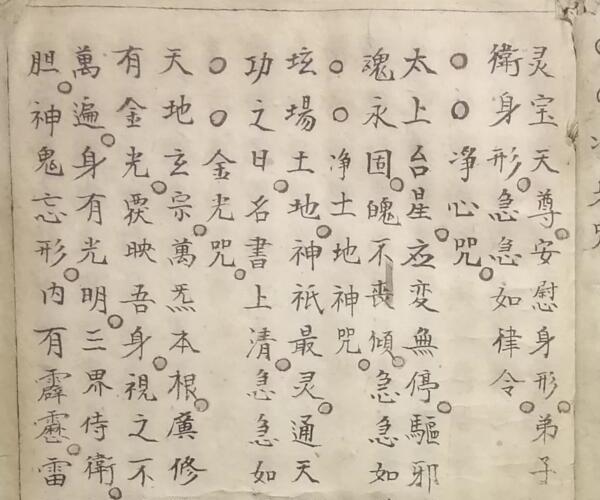 灵宝天尊安慰身形弟子
衛身形急急如律令
○○净心咒
太上台星应变無停驅邪
魂永固魄不丧傾急急如
○○净土地神咒
坛場土地神祇最灵通天
功之日名書上清急急如
○○金光咒
天地玄宗萬炁本根廣修
有金光覆映吾身視之不
萬遍身有光明三界侍衛
胆神鬼忘形内有霹雳雷